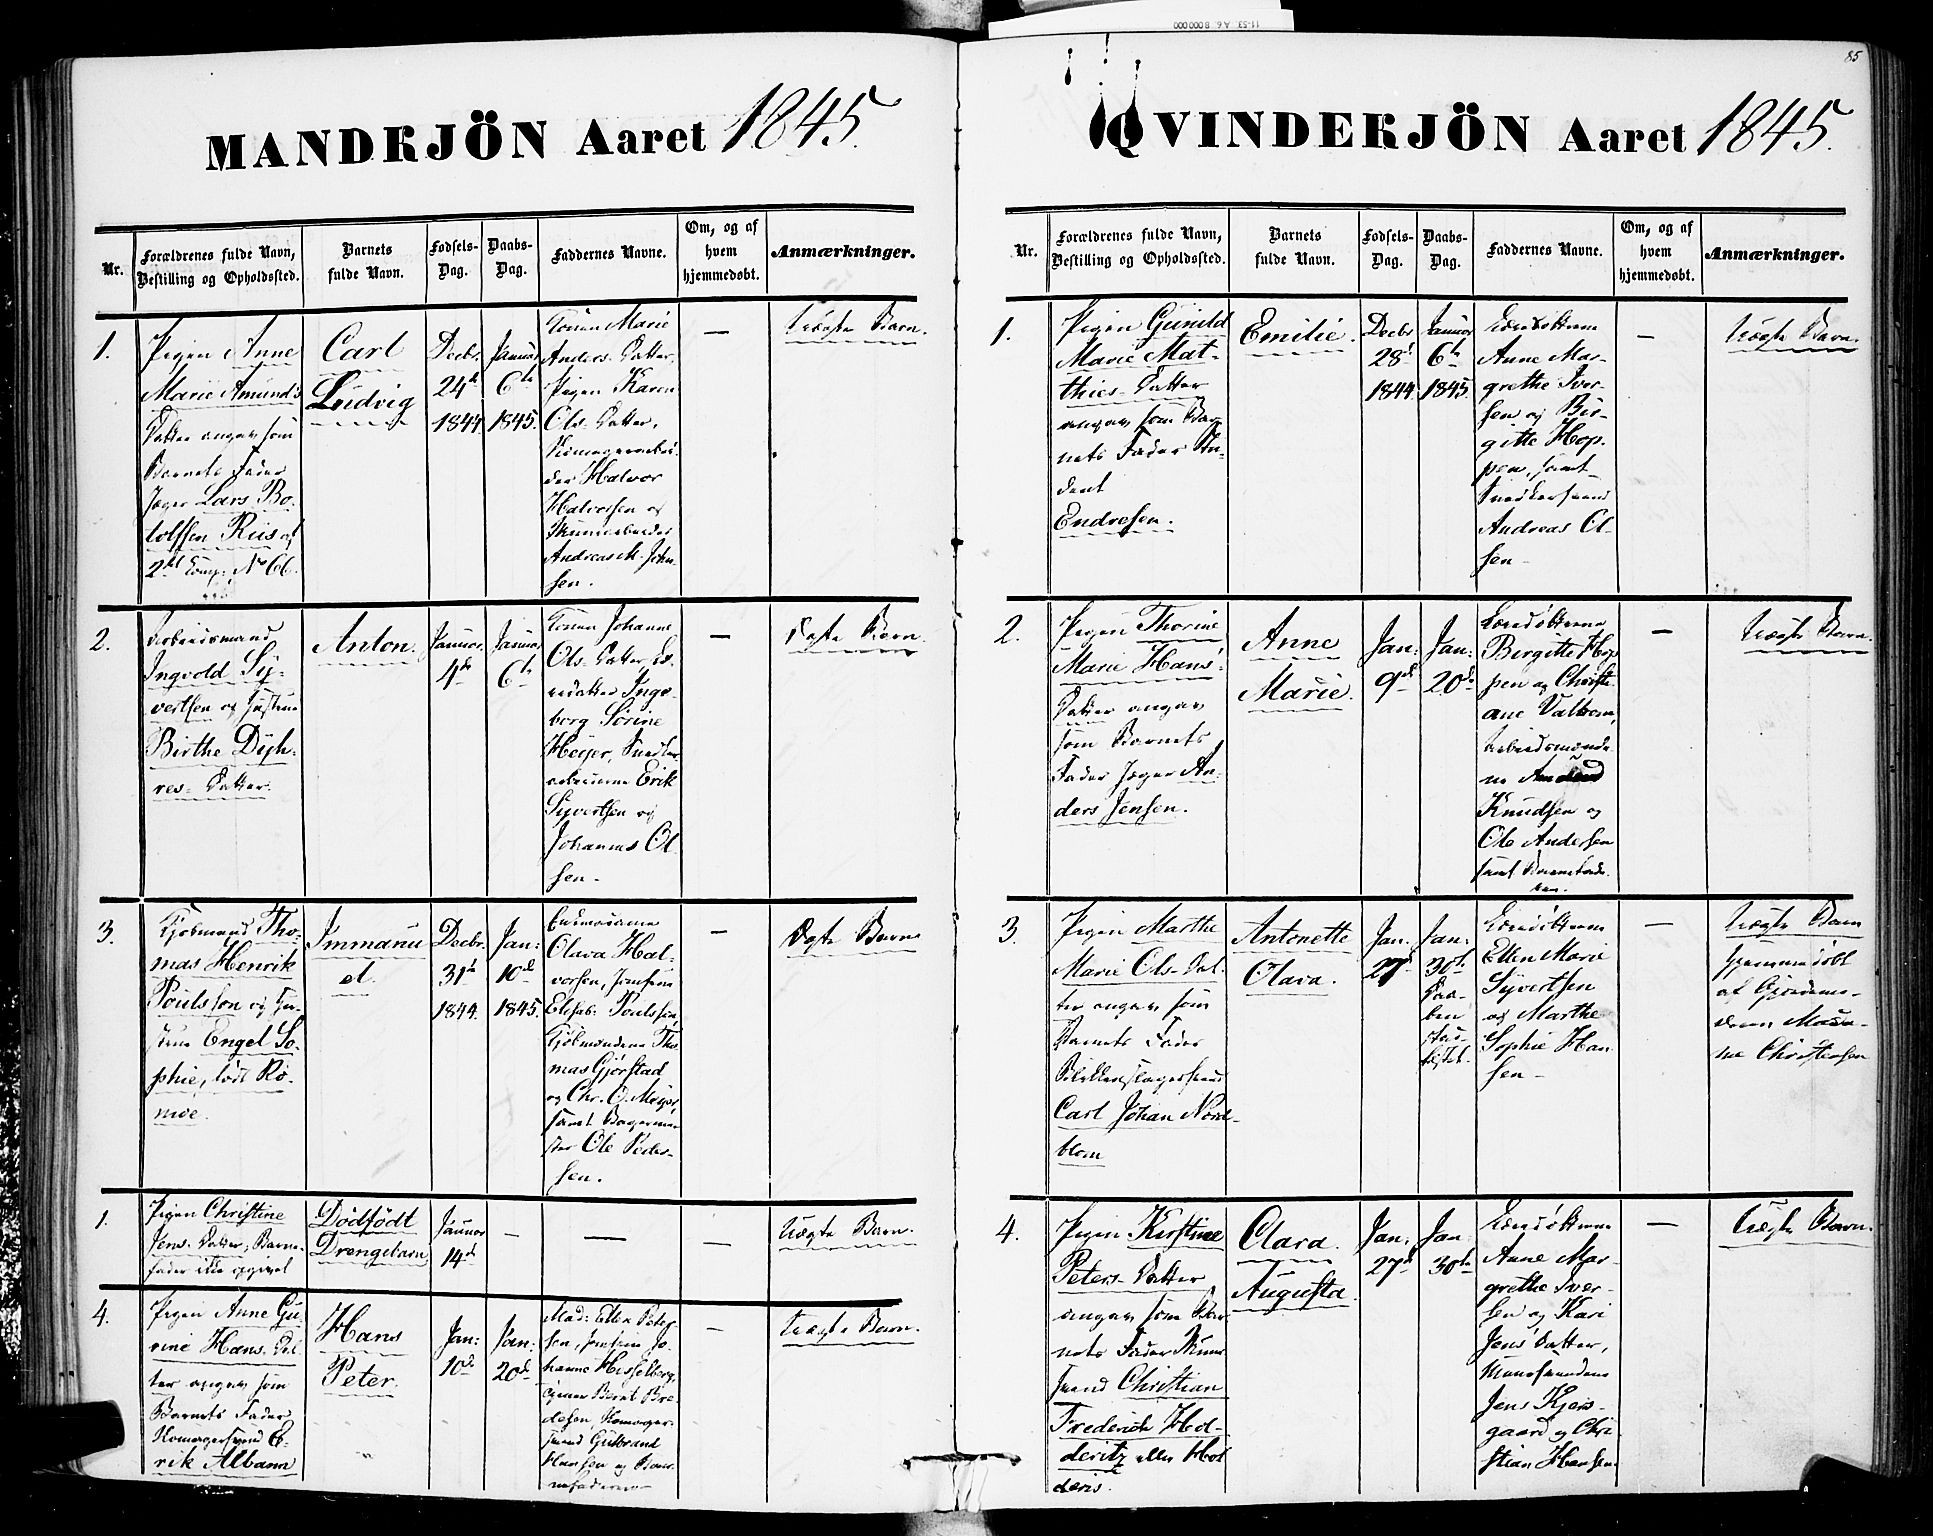 85
MANDKJÖN Aaret 1845.
Nr.
Forældrenes fulde Navn,
Bestilling og Opholdssted.
Barnets
fulde Navn.
Fødsels-
Dag.
Daabs-
Dag.
Faddernes Navne.
Om, og af
hvem
hjemmedøbt.
Anmærkninger.
1.
Pigen Anne
Marie Amund's
Datter angav som
Barnets Fader
Jæger Lars Bo-
tolfsen Riis af
2det Comp. No 66.
Carl
Ludvig
Decbr.
24de
1844.
Januar
6te
1845.
Konen Marie
Anders-Datter,
Pigen Karen
Ols-Datter,
Halvor
Halvorsen og
Andreas M. John-
sen.
—
Uægte Barn.
2.
Arbeidsmand
Ingvold Sy-
vertsen og Hustrue
Birthe Dyh-
res-Datter.
Anton.
Januar.
4de
Januar
6te
Konen Johanne
Ols-Datter,
Inge-
borg Sørine
Heyer,
Erik
Syvertsen og
Johannes Ol-
sen.
—
Ægte Barn.
3.
Kjøbmand Tho-
mas Henrik
Poulsson og Hu-
strue Engel So-
phie, født Ro-
moe.
Immanu
el.
Decbr.
31te
1844.
Jan:
10de
1845.
Olava Hal-
vorsen, Jomfrue
Elisab: Poulssen,
Kjøbmændene Tho-
mas Gjørstad
og Chr. O. Meyer,
samt Bagerme-
ster Ole Peder-
sen.
—
Ægte Barn
1.
Pigen Christine
Jens-Datter, Barne-
fader ikke opgivet
Dødfødt
Drengebarn
Januar
14de
—
—
—
Uægte Barn.
4.
Pigen Anne Gu-
rine Hans-Dat-
ter angav som
Barnets Fader
Komagersvend E-
rik Albann
Hans
Peter.
Jan:
10de
Jan:
20de
Mad: Ellen Peter-
sen, Jomfrue Jo-
hanne Hesselberg,
Bernt Bre-
desen, Komager-
svend Gulbrand
Hansen og Barne-
faderen
—
Uægte Barn.
QVINDEKJÖN Aaret 1845.
Nr.
Forældrenes fulde Navn,
Bestilling og Opholdssted.
Barnets
fulde Navn.
Fødsels-
Dag.
Daabs-
Dag.
Faddernes Navne.
Om, og af
hvem
hjemmedøbt.
Anmærkninger.
1.
Pigen Gunild
Marie Mat-
thies-Datter
angav som Bar-
nets Fader Stu-
dent
Endresen.
Emilie.
Decbr
28de
1844.
Januar
6te
1845.
Anne Mar-
grethe Iver-
sen og Bir-
gitte Hop-
pen, samt
Snedkersvend
Andreas Ol-
sen
—
Uægte Barn.
2.
Pigen Thorine
Marie Hans'-
Datter angav
som Barnets
Fader Jæger An-
ders Jensen.
Anne
Marie.
Jan:
9de
Jan:
20de
Birgitte Hop
pen og Christi-
ane Valbom,
Arbeidsmænde-
ne
Knudsen og
Ole Andersen
samt Barnefade-
ren.
—
Uægte Barn.
3.
Pigen Marthe
Marie Ols-Dat-
ter angav som
Barnets Fader
Blikkenslagersvend
Carl Johan Nord-
blom
Antonette
Olava.
Jan.
27de
Jan:
30te
Ellen Marie
Syvertsen
og Marthe
Sophie Han-
sen
—
Uægte Barn
hjemmedøbt
af Gjordemo-
deren
Christensen
4.
Pigen Kirstine
Peters-Datter
angav som Bar-
nets Fader
svend Christian
Frederich Hol-
deritz eller Hol
deris.
Clara
Augusta.
Jan:
27de
Jan:
30te
Anne Mar-
grethe Iver-
sen og Kari
Jens'Datter,
Muursvendene
Jens Kjers-
gaard og Chri-
stian Hansen.
—
Uægte Barn.